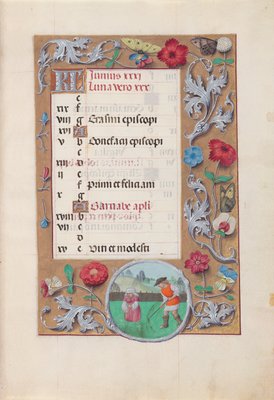 KL Junius xxxj
Luna vero xxx
e
xix f
viii g Erasmi episcopi
xvi A
v b Bonifacii episcopi
c
xiii d
ii e
f Primi et feliciani
x g
A Barnabe apli
xviii b
vii c
d
xv e Viti et modesti